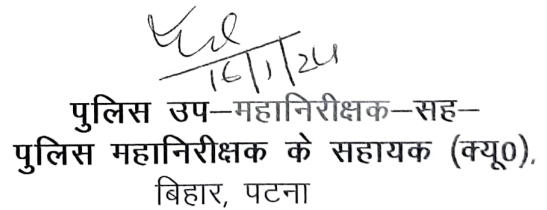 16/1/24
पुलिस उप–महानिरीक्षक–सह–
पुलिस महानिरीक्षक के सहायक (क्यू०),
बिहार, पटना